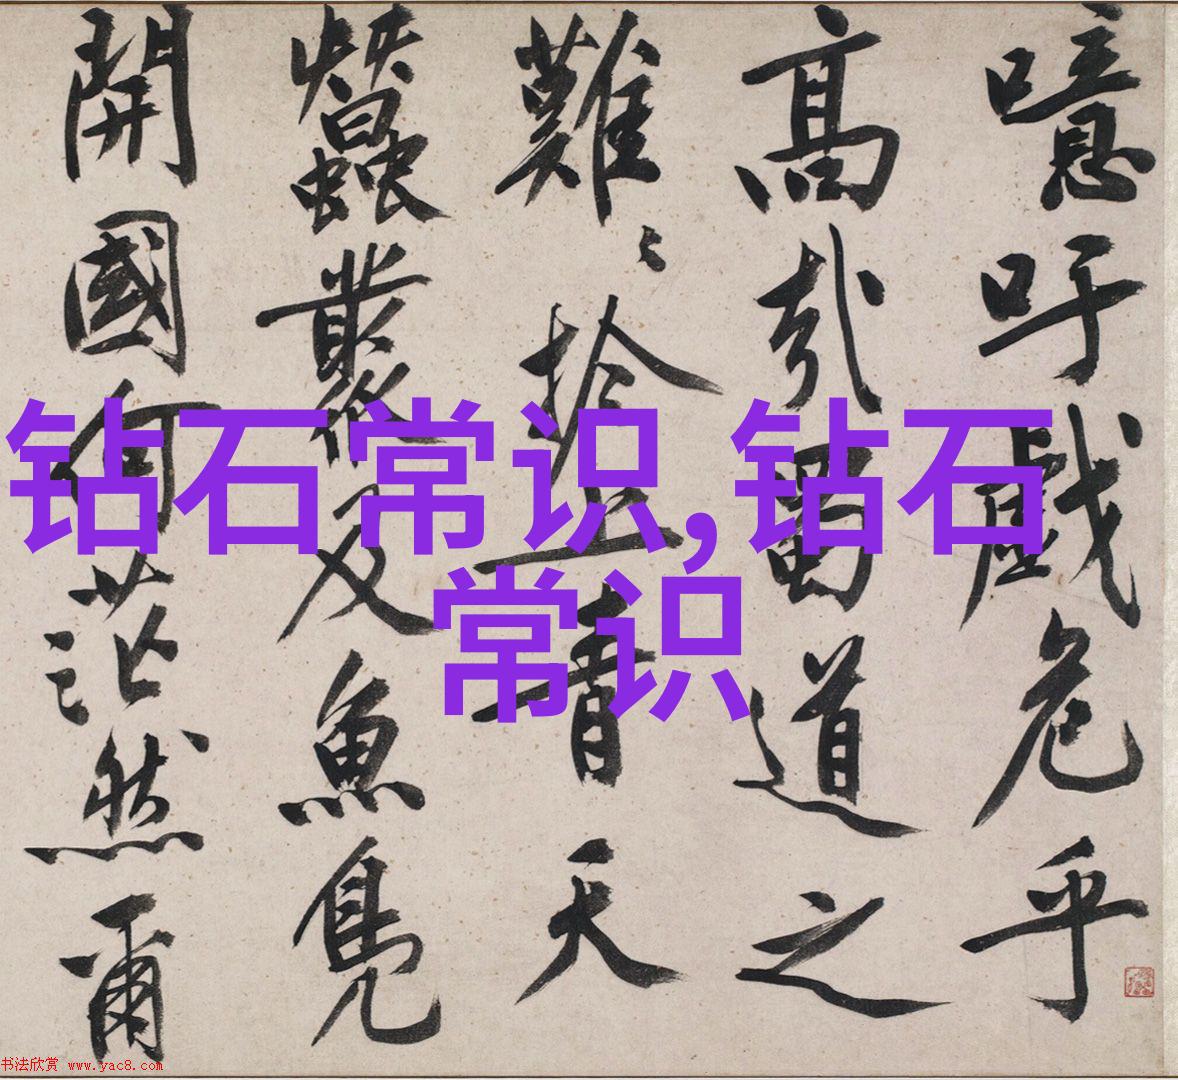 噫吁戲危乎
高哉蜀道之
難〻於上青天
蠶叢及魚鳧
開國何茫然爾
钻石常识,钻石
常识
书法欣赏 www.yac8.com